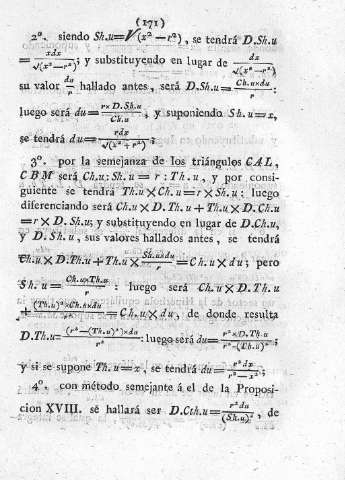 (171)
2º. siendo Sh.u=√(x²−r²), se tendrá D.Sh.u
= xdx/√(x²−r²); y substituyendo en lugar de dx/√(x²−r²)
su valor du/r hallado antes, será D.Sh.u= Ch.u×du/r:
luego será du= r×D.Sh.u/Ch.u, y suponiendo Sh.u=x,
se tendrá du= rdx/√(x²+r²);
3º. por la semejanza de los triángulos CAL,
CBM será Ch.u: Sh.u = r: Th.u, y por consi-
guiente se tendrá Th.u×Ch.u=r×Sh.u: luego
diferenciando será Ch.u×D.Th.u+Th.u×D.Ch.u
=r×D.Sh.u; y substituyendo en lugar de D.Ch.u,
y D.Sh.u, sus valores hallados antes, se tendrá
Ch.u×D.Th.u+Th.u× Sh.u×du/r =Ch.u×du; pero
Sh.u= Ch.u×Th.u/r: luego será Ch.u×D.Th.u
+ (Th.u)²×Ch.u×du/r² =Ch.u×du, de donde resulta
D.Th.u= (r²−(Th.u)²)×du/r²: luego será du= r²×D.Th.u/r²−(Th.u)²;
y si se supone Th.u=x, se tendrá du= r²dx/r²−x²;
4º. con método semejante á el de la Proposi-
cion XVIII. se hallará ser D.Cth.u= r²du/(Sh.u)², de